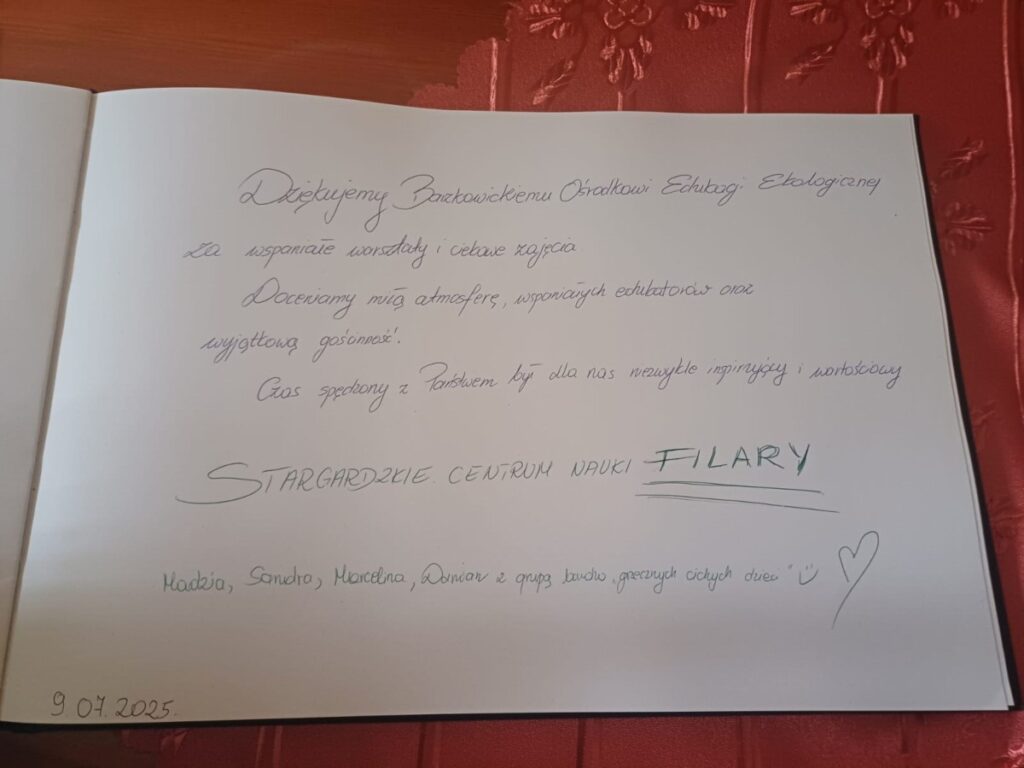 Dziękujemy Barzkowickiemu Ośrodkowi Edukacji Ekologicznej
za wspaniałe warsztaty i ciekawe zajęcia.
Doceniamy miłą atmosferę, wspaniałych edukatorów oraz
wyjątkową gościnność!
Czas spędzony z Państwem był dla nas niezwykle inspirujący i wartościowy
STARGARDZKIE CENTRUM NAUKI FILARY
Madzia, Sandra, Marcelina, Damian z grupą bardzo „grzecznych cichych dzieci"
9.07.2025.